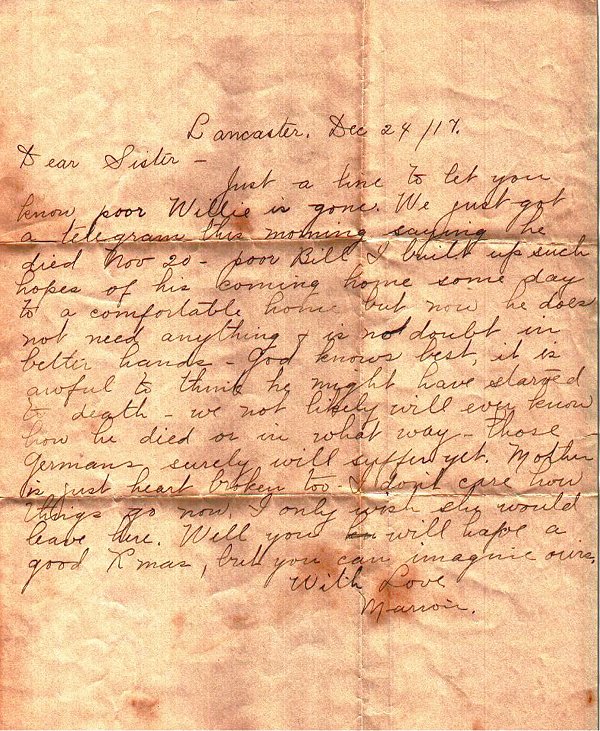 Lancaster. Dec 24/17.
Dear Sister -
Just a line to let you
know poor Willie is gone. We just got
a telegram this morning saying he
died Nov 20 - poor Bill I built up such
hopes of his coming home some day
to a comfortable home but now he does
not need anything & is no doubt in
better hands - God knows best, it is
awful to think he might have starved
to death - we not likely will ever know
how he died or in what way - those
Germans surely will suffer yet. Mother
is just heart broken too - I don't care how
things go now I only wish she would
leave here. Well you will have a
good Xmas, but you can imagine ours.
With Love
Marion.